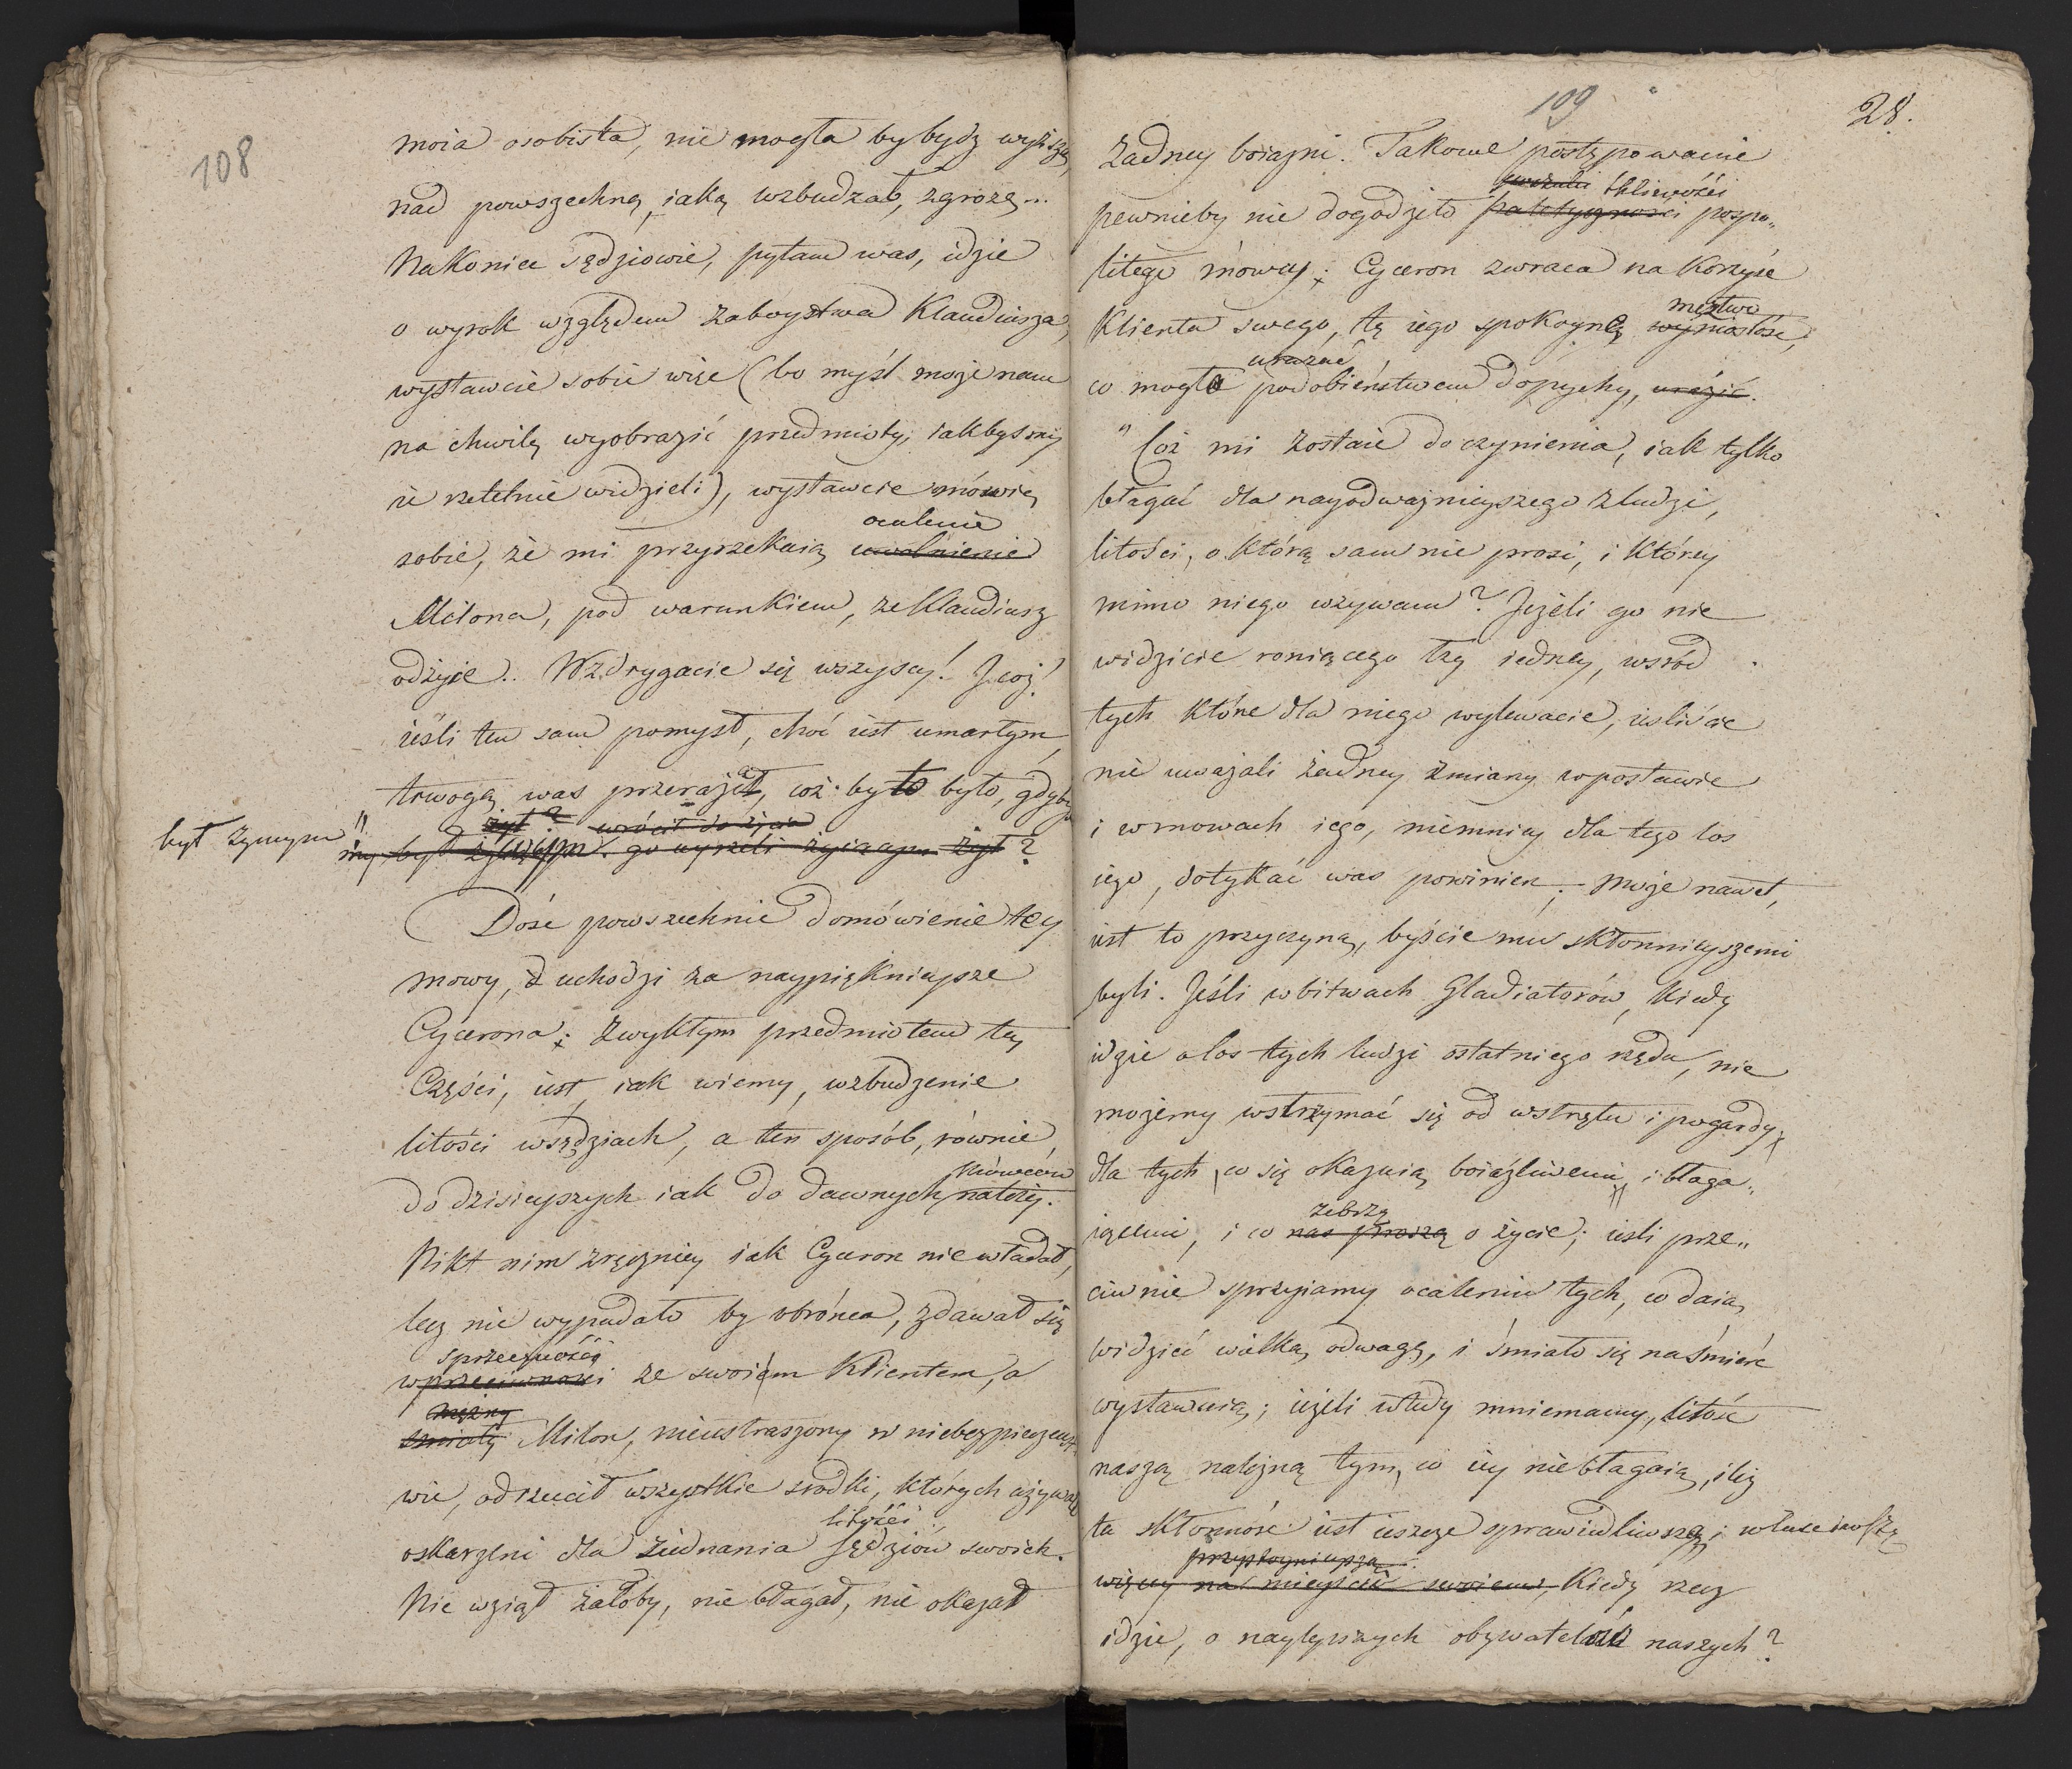 108
moia osobista, nie mogła by bydz wyższą,
nad powszechną, iaką wzbudzał, zgrozę...
Nakoniec Sędziowie, pytam was, idzie
o wyrok względem zaboystwa Klaudiusza,
wystawcie sobie więc (bo myśl może nam
na chwilę wyobrazić przedmioty, iakbysmy
ie rzetelnie widzieli), wystawcie mówię
ocalenie
sobie, że mi przyrzekaią uwolnienie
Milona, pod warunkiem, że Klaudiusz
odżyie.. Wzdrygacie się wszyscy! I coż!
ieśli ten sam pomysł, choć iest umarłym,
trwogą was przeraził, coż by to było, gdyby
żył? wrócił do życia
był żywym"
my był żyiącym. go uyrzeli żyiącym żył?
Dość powszechnie domówienie tey
mowy, uchodzi za naypięknieysze
Cycerona; zwykłym przedmiotem tey
Części, iest, iak wiemy, wzbudzenie
litości w sędziach, a ten sposób, równie,
mówców
do dzisieyszych iak do dawnych należy.
Nikt nim zręczniey iak Cyceron nie władał,
lecz nie wypadało by obrońca, zdawał się
sprzeczności
w przeciwności ze swoiém Klientem, a
mężny
śmiały Milon, nieustraszony w niebezpieczeńst-
wie, odrzucił wszystkie srodki, których używali
litości
oskarżeni dla ziednania sędziów swoich.
Nie wziął żałoby, nie błagał, nie okazał
109
28.
żadney boiaźni. Takowe postępowanie
tkliwości
pewnieby nie dogodziło patetyczności pospo„
litego mówcy; Cyceron zwraca na korzyść
męztwo
Klienta swego, tę iego spokoyną wyniosłość,
urazać
co mogła podobieństwem do pychy, urazić.
"Coż mi zostaie do czynienia, iak tylko
błagać dla nayodważnieyszego z ludzi,
litości, o którą sam nie prosi, i którey
mimo niego wzywam? Jeżeli go nie
widzicie roniącego łzy iedney, wsród
tych które dla niego wylewacie, ieslisćie
nie uważali żadney zmiany w postawie
i w mowach iego, niemniey dla tego los
iego, dotykać was powinien; może nawet,
iest to przyczyną, byście mu skłonnieyszemi
byli. Jeśli w bitwach Gladiatorów, kiedy
idzie o los tych ludzi ostatniego rzędu, nie
możemy wstrzymać się od wstrętu i pogardy,
dla tych, co się okazuią boiaźliwemi, i błaga„
żebrzą
iącemi, i co nas proszą o życie; ieśli prze„
ciwnie sprzyiamy ocaleniu tych, co daią
widzieć wielką odwagę, i śmiało się na śmierć
wystawuią; ieżeli wtedy mniemamy, litość
naszą należną tym, co iey nie błagaią, ileż
ta skłonność iest ieszcze sprawiedliwszą; właściwszą
przystoynieyszą
więcey na mieyscu swoiem, Kiedy rzecz
idzie, o naylepszych obywatelach naszych?